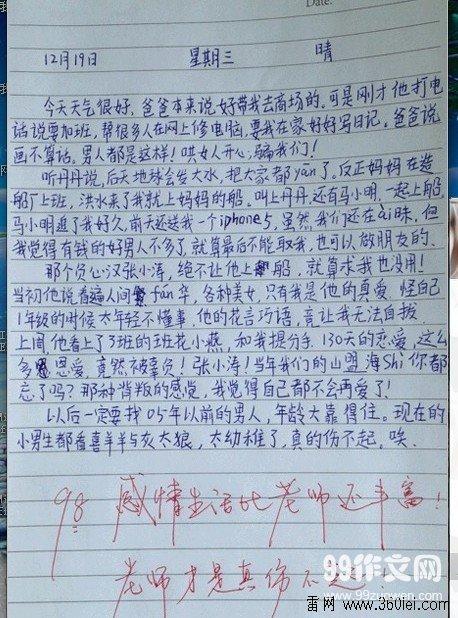 Date:
12月19日 星期三 晴
今天天气很好,爸爸本来说好带我去商场的,可是刚才他打电
话说要加班,帮很多人在网上修电脑,要我在家好好写日记。爸爸说
画不算话。男人都是这样!哄女人开心,骗我们!
听丹丹说,后天地球会发大水,把大家都yan了。反正妈妈在造
船厂上班,洪水来了我就上妈妈的船。叫上丹丹,还有马小明,一起上船
马小明追了我好久,前天还送我一个iphone5,虽然我们还在ai昧,但
我觉得有钱的好男人不多了,就算最后不能取我,也可以做朋友的、
那个负心汉张小涛,绝不让他上船,就算求我也没用!
当初他说看遍人间fan华,各种美女,只有我是他的真爱 怪自己
1年级的时候太年轻不懂事,他的花言巧语,竟让我无法自拔
上周他看上了3班的班花小燕,和我提分手,130天的恋爱,这么
多恩爱,竟然被辜负!张小涛!当年我们的山盟海Shi你都
忘了吗?那种背叛的感觉,我觉得自己都不会再爱了!
以后一定要找05年以前的男人,年龄大靠得住。现在的
小男生都看喜羊羊与灰太狼,太幼稚了,真的伤不起。唉
98 感情生活比老师还丰富!
老师才是真伤不起!
99作文网
www.99zuowen.com
雷网 www.360lei.com